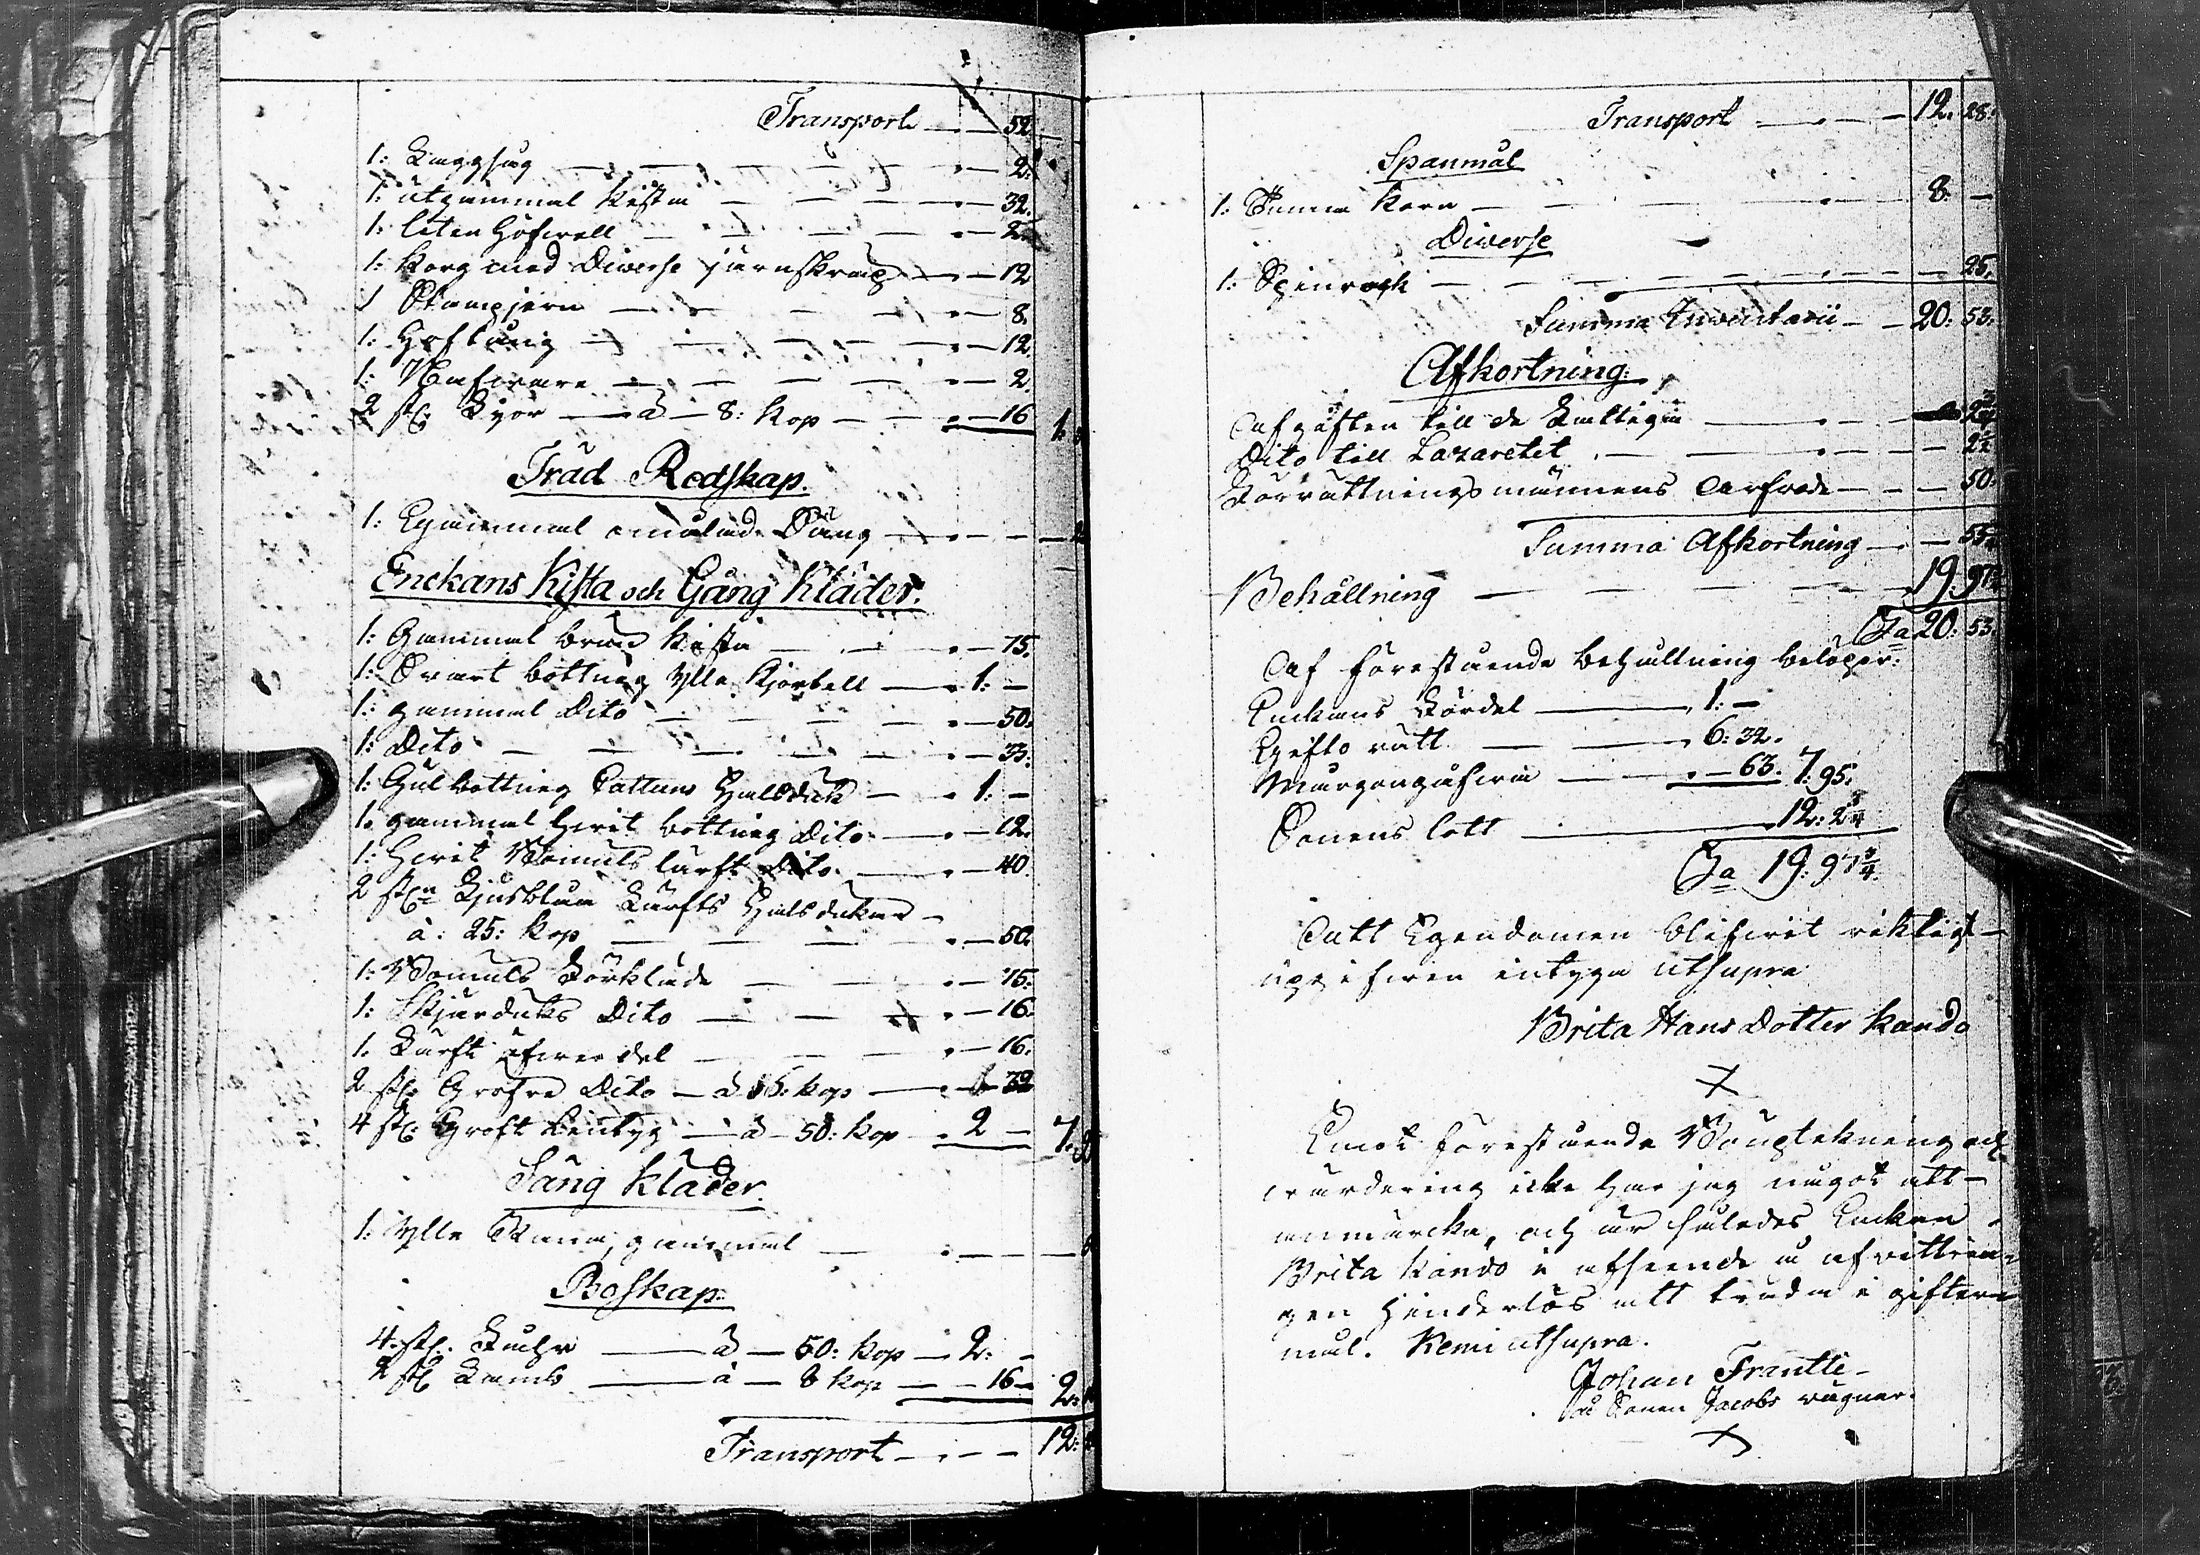 Transport — 52.
1: Laggsåg — 2.
1: utgammal kista — 32.
1: liten Höfwell — 2.
1: korg med Diverse järnskrap — 12
1 Stampjern — 8.
1: Hoftång — 12
1: Nafware — 2.
2 st: Lior — à — 8: kop — 16 1:
Träd Redskap.
1: Gammal omålad Säng —
Enckans Kista och Gång Kläder.
1: Gammal brud kista — 75.
1: Svart bottnig ylle kjortell — 1: —
1: gammal Dito — 50.
1: Dito — 33.
1: Gul bottnig Cattuns Halsduk — 1: —
1. gammal hvit bottnig Dito — 12.
1: Hvit Bomuls lärft Dito — 40.
2 st:n Ljusblåa Lärfts Halsdukar —
à: 25: kop — 50.
1: Bomuls Förkläde — 75.
1: Skjärduks Dito — 16.
1. Lärft öfwerdel — 16.
2 st: Grofre Dito — à 16: kop — 32
4 st: Groft Lintyg — à — 50: kop — 2 — 7:
Säng kläder.
1: Ylle Rana, gammal —
Boskap:
4: st: Får — à — 50: kop — 2: —
2 st: Lamb — à — 8 kop — 16 — 2:
Transport — 12:
Transport — 12. 28:
Spanmål
1: Tunna korn — 8. —
Diverse
1: Spinrock — 25.
Summa Inventarii — 20: 53:
Afkortning.
Afgiften till de Fattiga —
Dito till Lazaretet — 2½
Förrättnings männens Arfvode — 50:
Summa Afkortning — 55¼
Behållning — 19: 97¾
Ja 20: 53.
Af förestående behållning belöper:
Enckans Fördel — 1: —
Gifto rätt — 6: 32.
Morgongåfwa — 63. 7: 95.
Sonens lott — 12: 2¾
Ja 19: 97¾.
Att Egendomen blifwit riktigt
uppgifwen intyga utsupra
Brita Hans Dotter Kando
X
Emot förestående Bouptekning och
wärdering icke har jag något att
anmärcka, och är således Enkan
Brita Kando i afseende å afvittrin-
gen hinderlös att träda i gifter-
mål. Kemi utsupra.
Johan Frantti
på Sonen Jacobs vägnar.
X